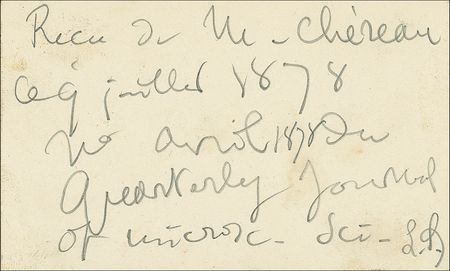 Recu de M. Chéreau
le 9 juillet 1878
No avril 1878 Du
Quarterly Journal
of microsc. Sci.